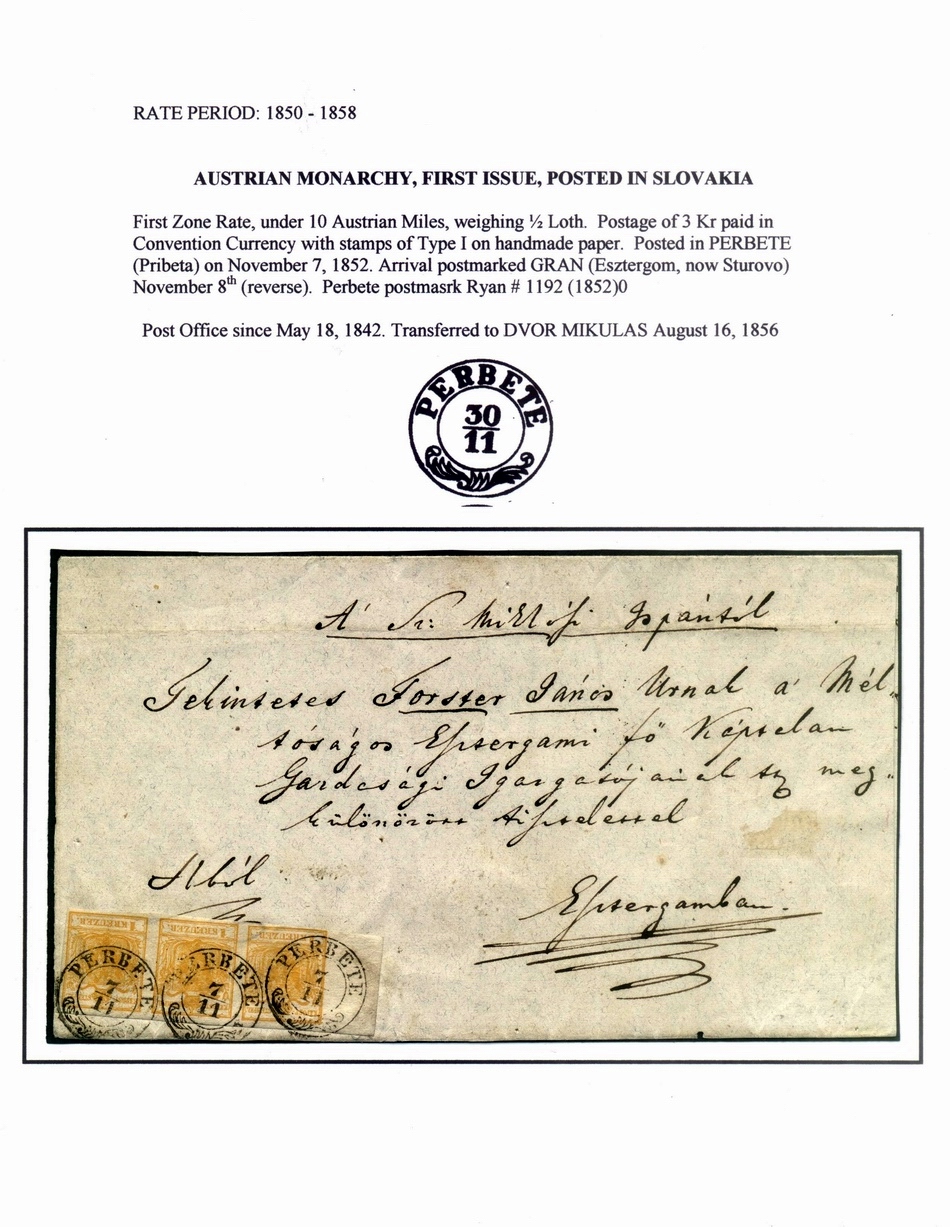 RATE PERIOD: 1850 - 1858
AUSTRIAN MONARCHY, FIRST ISSUE, POSTED IN SLOVAKIA
First Zone Rate, under 10 Austrian Miles, weighing ½ Loth. Postage of 3 Kr paid in
Convention Currency with stamps of Type I on handmade paper. Posted in PERBETE
(Pribeta) on November 7, 1852. Arrival postmarked GRAN (Esztergom, now Sturovo)
November 8th (reverse). Perbete postmasrk Ryan # 1192 (1852)0
Post Office since May 18, 1842. Transferred to DVOR MIKULAS August 16, 1856
PERBETE
30
11
A' Sz: Miklósi Ispántól
Tekintetes Forster János Urnak a' Mél-
tóságos fő
meg-
Esztergamban.
1 KREUZER
1 KREUZER
KREUZER
PERBETE
7
11
PERBETE
7
11
PERBETE
7
11